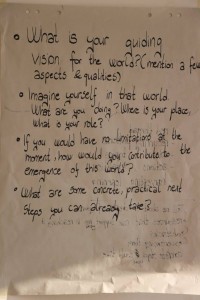 • What is your guiding
vision for the world? (mention a few
aspects & qualities)
• Imagine yourself in that world.
What are you doing? Where is your place,
What is your role?
• If you would have no limitations at the
moment, how would you contribute to the
emergence of this world?
• What are some concrete, practical next
steps you can already take?